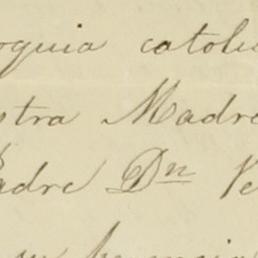 oquia catoli
stra Madre
adre Dn Ve